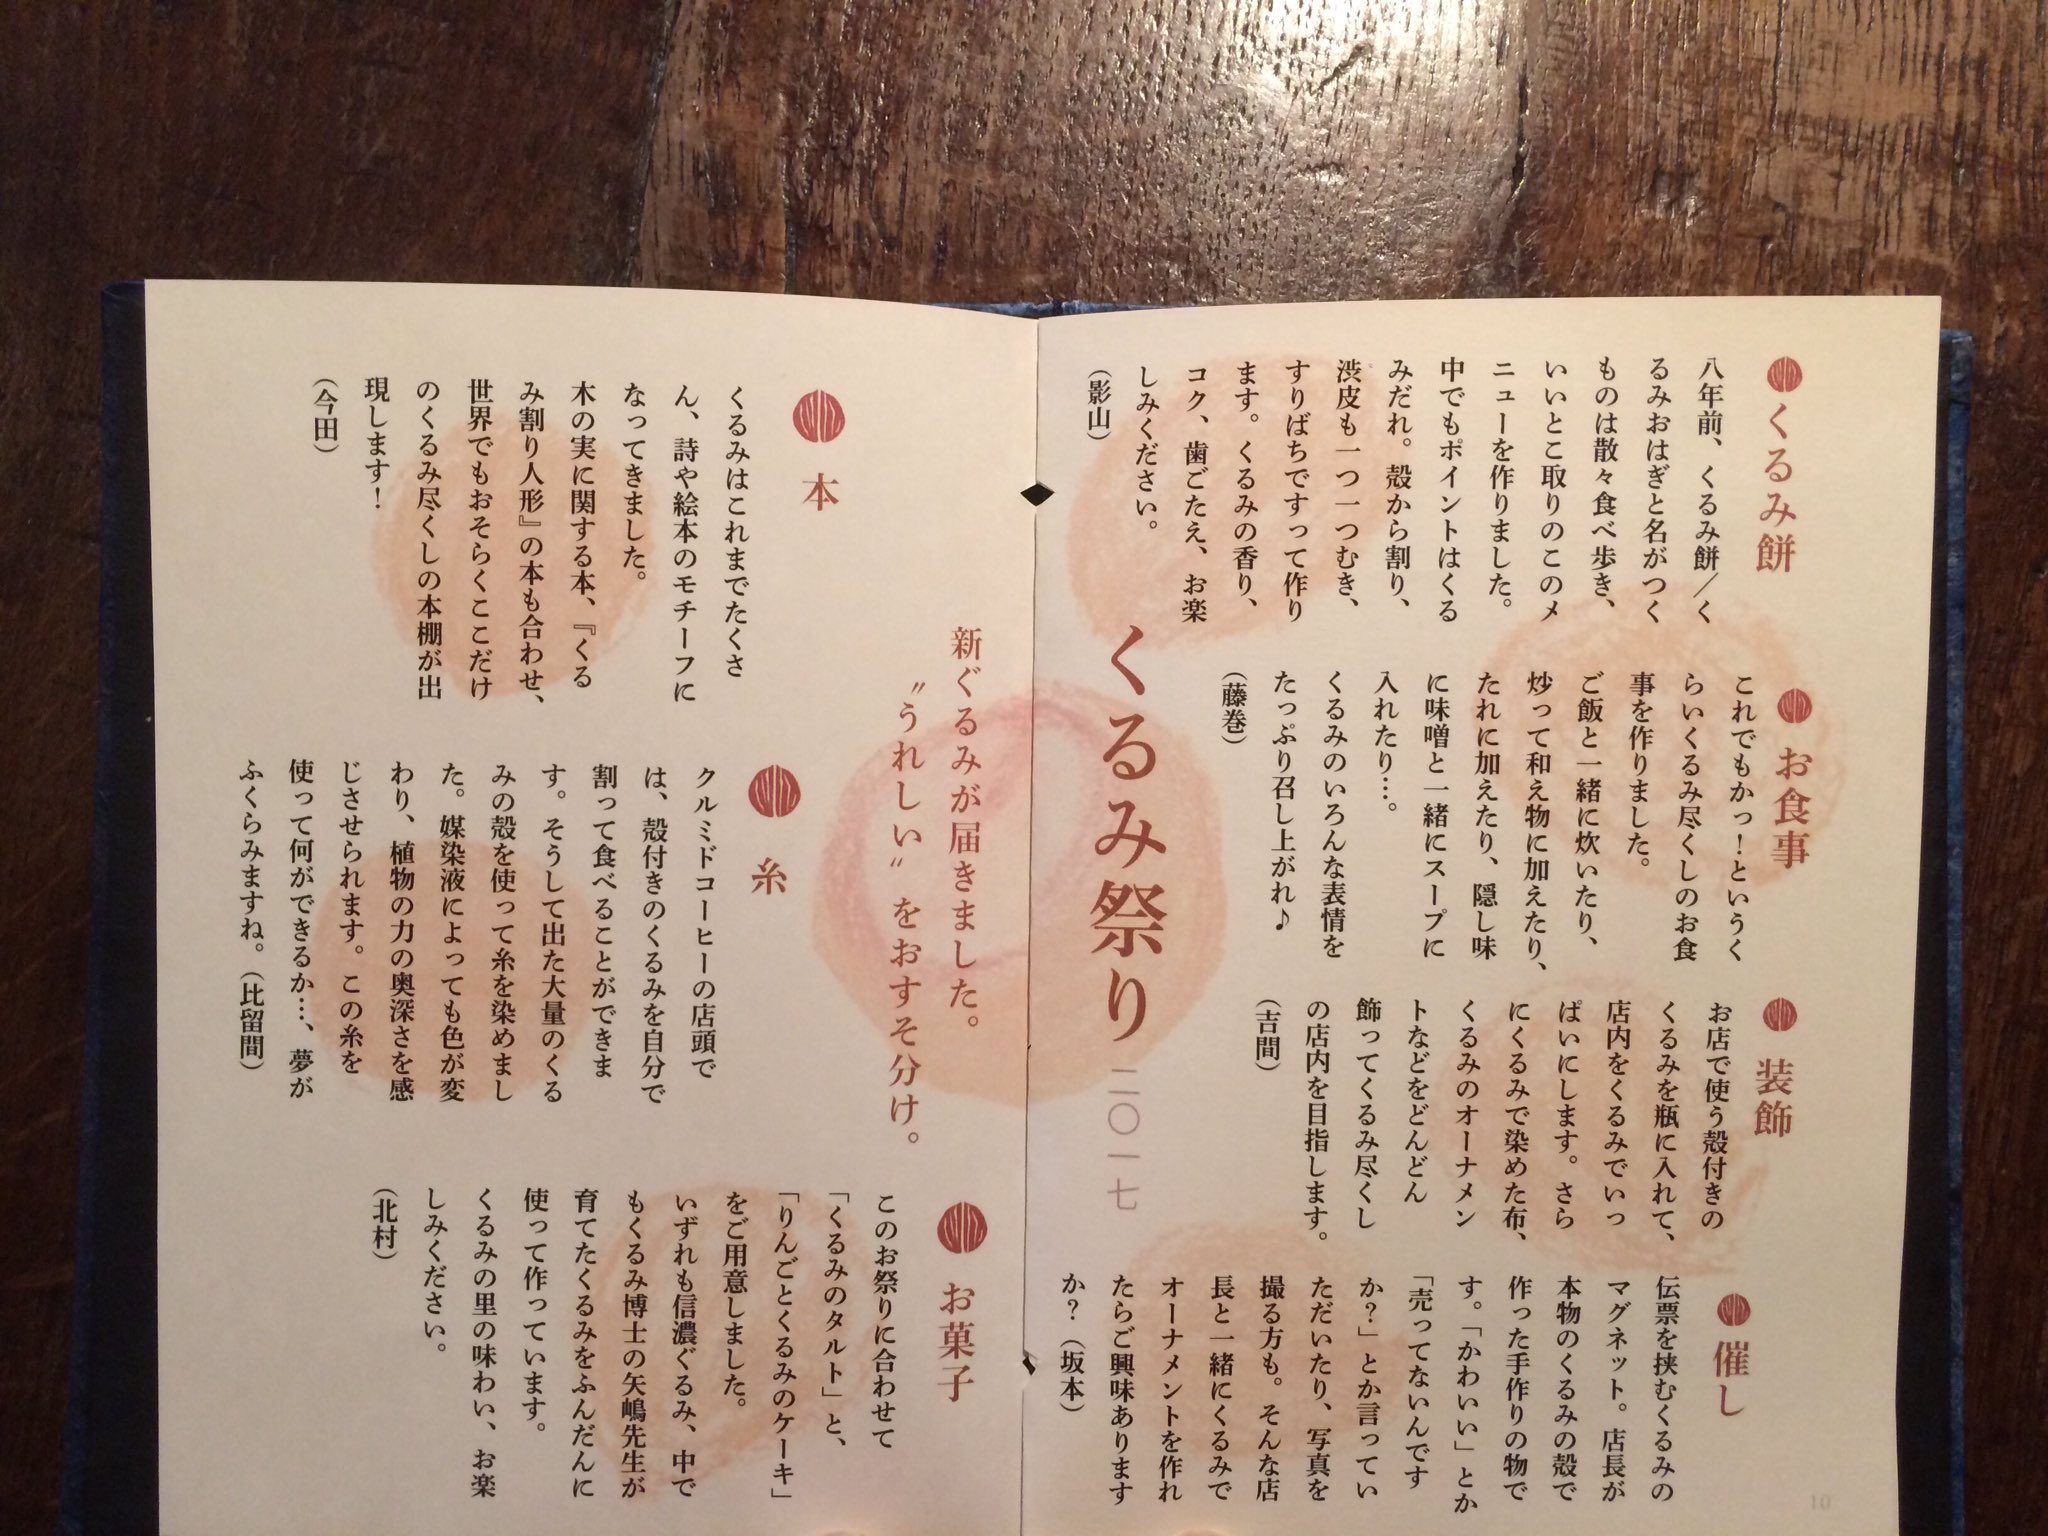 くるみ餅
八年前、くるみ餅／く
るみおはぎと名がつく
ものは散々食べ歩き、
いいとこ取りのこのメ
ニューを作りました。
中でもポイントはくる
みだれ。殻から割り、
渋皮も一つ一つむき、
すりばちですって作り
ます。くるみの香り、
コク、歯ごたえ、お楽
しみください。
（影山）
お食事
これでもかっ！というく
らいくるみ尽くしのお食
事を作りました。
ご飯と一緒に炊いたり、
炒って和え物に加えたり、
たれに加えたり、隠し味
に味噌と一緒にスープに
入れたり…。
くるみのいろんな表情を
たっぷり召し上がれ♪
（藤巻）
装飾
お店で使う殻付きの
くるみを瓶に入れて、
店内をくるみでいっ
ぱいにします。さら
にくるみで染めた布、
くるみのオーナメン
トなどをどんどん
飾ってくるみ尽くし
の店内を目指します。
（吉間）
催し
伝票を挟むくるみの
マグネット。店長が
本物のくるみの殻で
作った手作りの物で
す。「かわいい」とか
「売ってないんです
か？」とか言ってい
ただいたり、写真を
撮る方も。そんな店
長と一緒にくるみで
オーナメントを作れ
たらご興味あります
か？（坂本）
くるみ祭り 二〇一七
新ぐるみが届きました。
〝うれしい〟をおすそ分け。
本
くるみはこれまでたくさ
ん、詩や絵本のモチーフに
なってきました。
木の実に関する本、『くる
み割り人形』の本も合わせ、
世界でもおそらくここだけ
のくるみ尽くしの本棚が出
現します！
（今田）
糸
クルミドコーヒーの店頭で
は、殻付きのくるみを自分で
割って食べることができま
す。そうして出た大量のくる
みの殻を使って糸を染めまし
た。媒染液によっても色が変
わり、植物の力の奥深さを感
じさせられます。この糸を
使って何ができるか…、夢が
ふくらみますね。（比留間）
お菓子
このお祭りに合わせて
「くるみのタルト」と、
「りんごとくるみのケーキ」
をご用意しました。
いずれも信濃ぐるみ、中で
もくるみ博士の矢嶋先生が
育てたくるみをふんだんに
使って作っています。
くるみの里の味わい、お楽
しみください。
（北村）
10